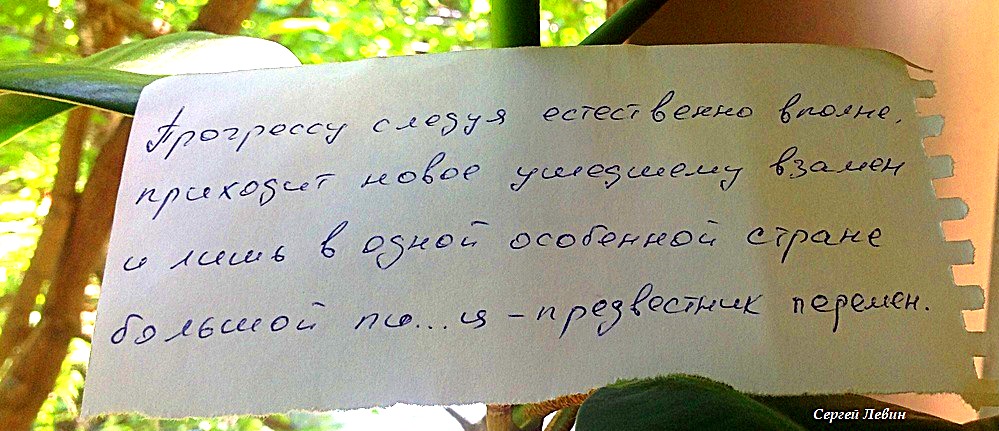 Прогрессу следуя естественно вполне,
приходит новое ушедшему взамен
и лишь в одной особенной стране
большой пи...ц - предвестник перемен.
Сергей Левин